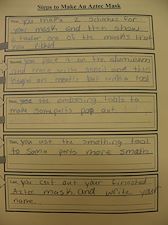 Steps to Make An Aztec Mask
First, you make 2 sketches for
you mask and then show
a tailor one of the masks that
you liked
Then, you put it on the aluminum
and trace with pencil and this
design on metal but with a tool
Next, you use the embossing tools to
make some parts pop out
you use the smothing tool
to some parts more smoth
Last, you cut out your finished
Aztec mask and write your
name.